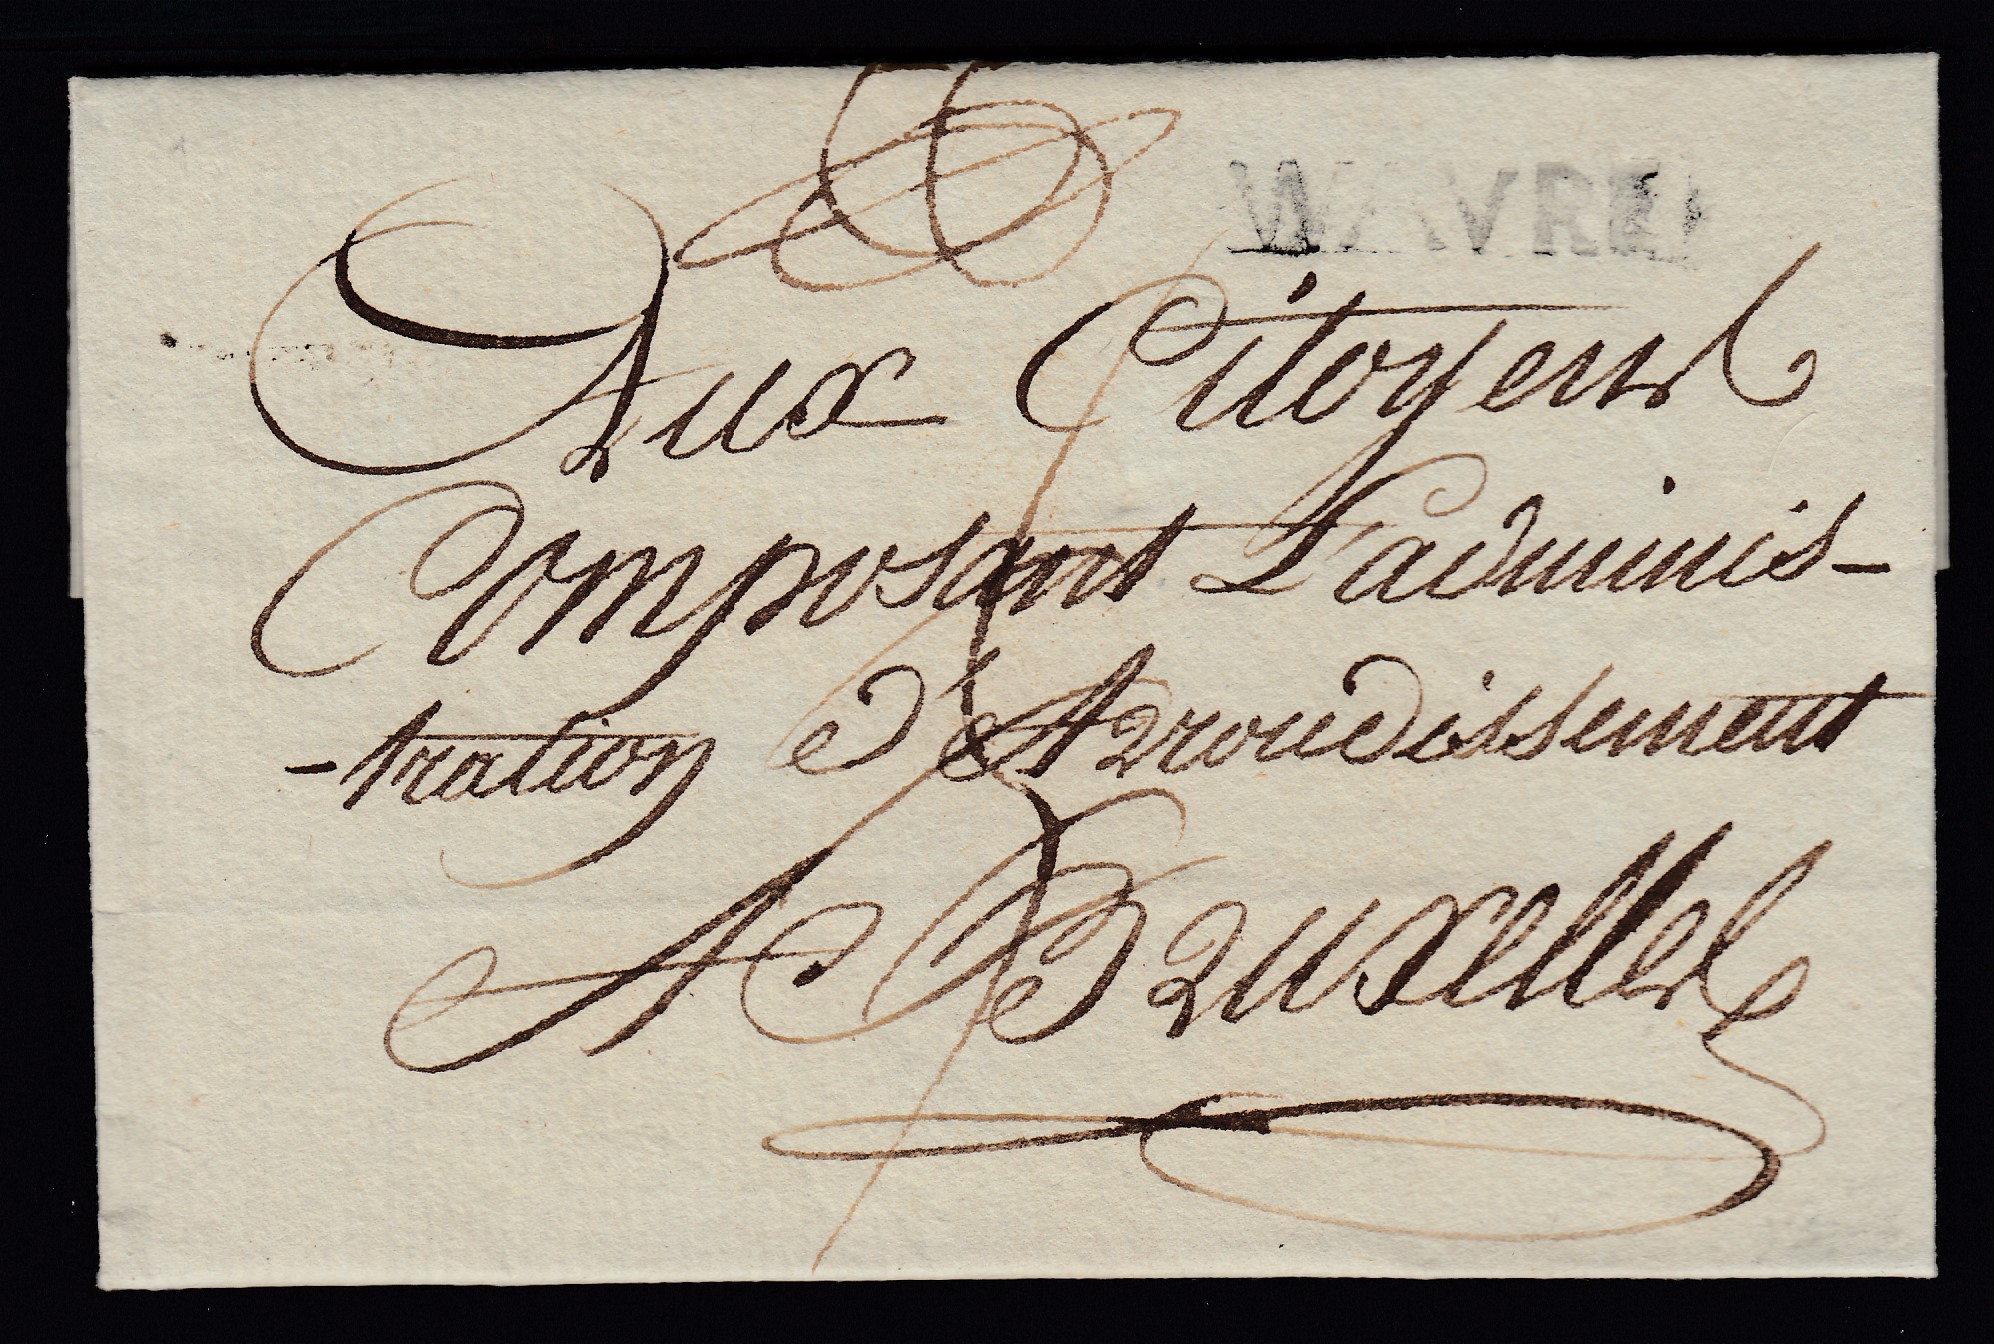 WAVRE
Aux Citoyens
Composant L'adminis-
-tration d'Arrondissement
A Bruxelles